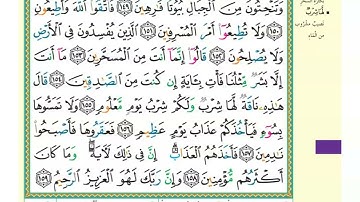 وَتَنْحِتُونَ مِنَ الْجِبَالِ بُيُوتًا فَرِهِينَ ١٤٩ فَاتَّقُوا اللَّهَ وَأَطِيعُونِ
١٥٠ وَلَا تُطِيعُوا أَمْرَ الْمُسْرِفِينَ ١٥١ الَّذِينَ يُفْسِدُونَ فِي الْأَرْضِ
وَلَا يُصْلِحُونَ ١٥٢ قَالُوا إِنَّمَا أَنْتَ مِنَ الْمُسَحَّرِينَ ١٥٣ مَا أَنْتَ
إِلَّا بَشَرٌ مِثْلُنَا فَأْتِ بِـَٔايَةٍ إِنْ كُنْتَ مِنَ الصَّدِقِينَ ١٥٤ قَالَ
هَذِهِ نَاقَةٌ لَهَا شِرْبٌ وَلَكُمْ شِرْبُ يَوْمٍ مَعْلُومٍ ١٥٥ وَلَا تَمَسُّوهَا
بِسُوءٍ فَيَأْخُذَكُمْ عَذَابُ يَوْمٍ عَظِيمٍ ١٥٦ فَعَقَرُوهَا فَأَصْبَحُوا
نَدِمِينَ ١٥٧ فَأَخَذَهُمُ الْعَذَابُ إِنَّ فِي ذَلِكَ لَآيَةً وَمَا كَانَ
أَكْثَرُهُمْ مُؤْمِنِينَ ١٥٨ وَإِنَّ رَبَّكَ لَهُوَ الْعَزِيزُ الرَّحِيمُ ١٥٩
لَهَا شِرْبٌ
نصيبٌ مشروب
من الماء